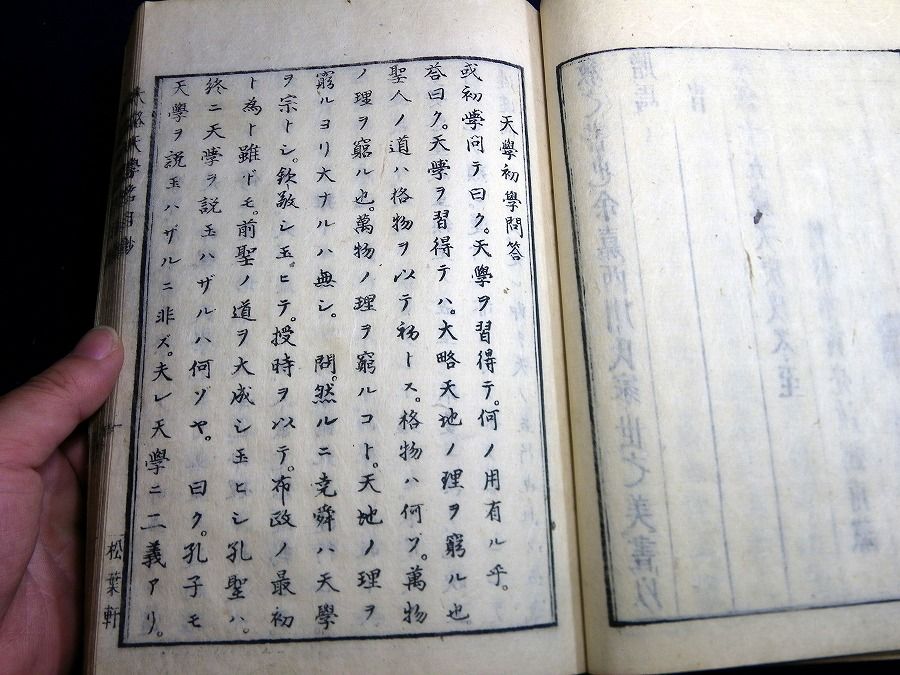 天學初學問答
或初學問テ曰ク。天學ヲ習得テ。何ノ用有ル乎。
荅曰ク。天學ヲ習得テハ。大略天地ノ理ヲ窮ル也
聖人ノ道ハ格物ヲ以テ初トス。格物ハ何ゾ。萬物
ノ理ヲ窮ル也。萬物ノ理ヲ窮ルコト。天地ノ理ヲ
窮ルヨリ大ナルハ無シ。問。然ルニ堯舜ハ天學
ヲ宗トシ。欽敬シ玉ヒテ。授時ヲ以テ。布政ノ最初
ト為ト雖ドモ。前聖ノ道ヲ大成シ玉ヒシ孔聖ハ。
終ニ天學ヲ説玉ハザルハ何ゾヤ。曰ク。孔子モ
天學ヲ説玉ハザルニ非ズ。夫レ天學ニ二義アリ。
松葉軒